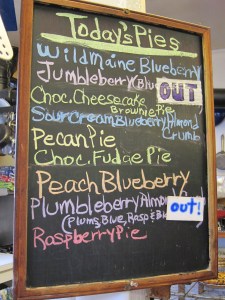 Today's Pies
Wild Maine Blueberry
Jumbleberry (Blu OUT
Choc. Cheesecake
Brownie Pie
Sour Cream Blueberry Almond
Crumb
Pecan Pie
Choc. Fudge Pie
Peach Blueberry
Plumbleberry Almond
(Plums, Blue, Rasp & Bl out!
Raspberry Pie